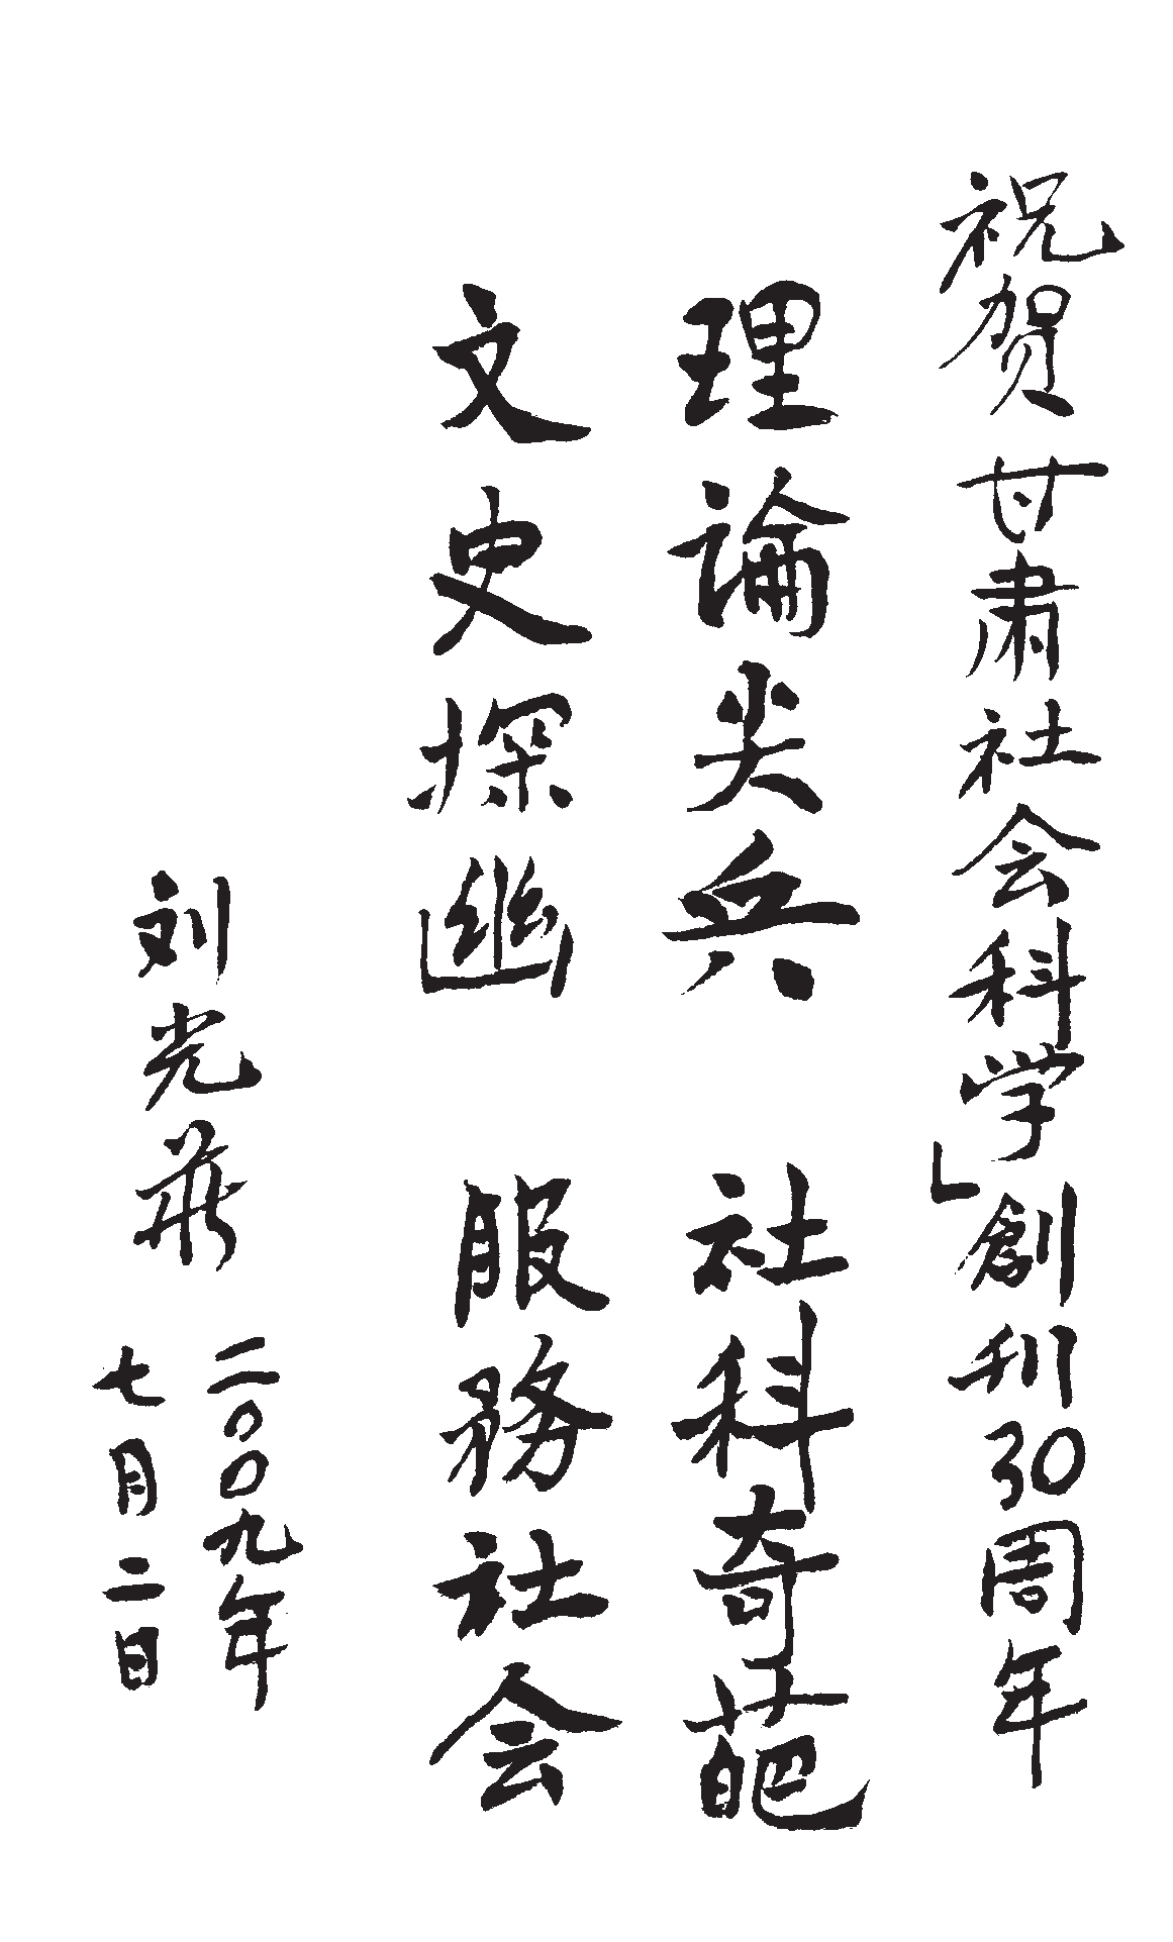 祝贺甘肃社会科学」創刊30周年
理論尖兵 社科奇葩
文史探幽 服務社会
刘光華
二〇〇九年
七月二日